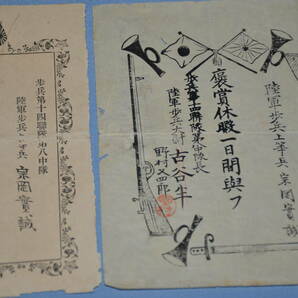 陸軍歩兵上等兵 宗岡實誠
褒賞休暇一日間與フ
歩兵第十四聯隊第八中隊長
陸軍歩兵大尉 古谷半
野村又四郎
歩兵第十四聯隊第八中隊
陸軍歩兵上等兵 宗岡實誠